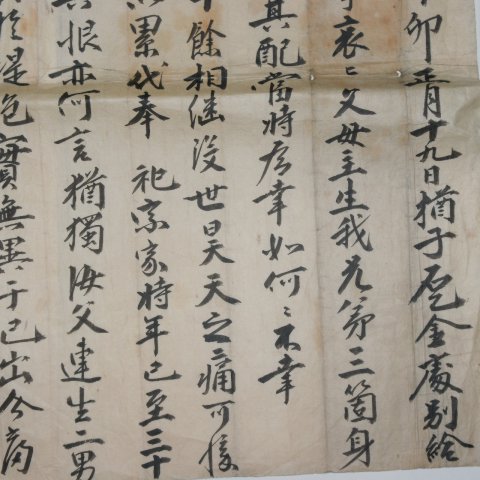 卯正月十九日猶子處金處別給
哀哀父母主生我兄弟三箇身
其配當時居幸如何〻不幸
餘相继沒世昊天之痛可揆
累代奉 祀宗家時年已至三十
恨亦何言猶獨汝父連生二男
於是色實無異于己出今商